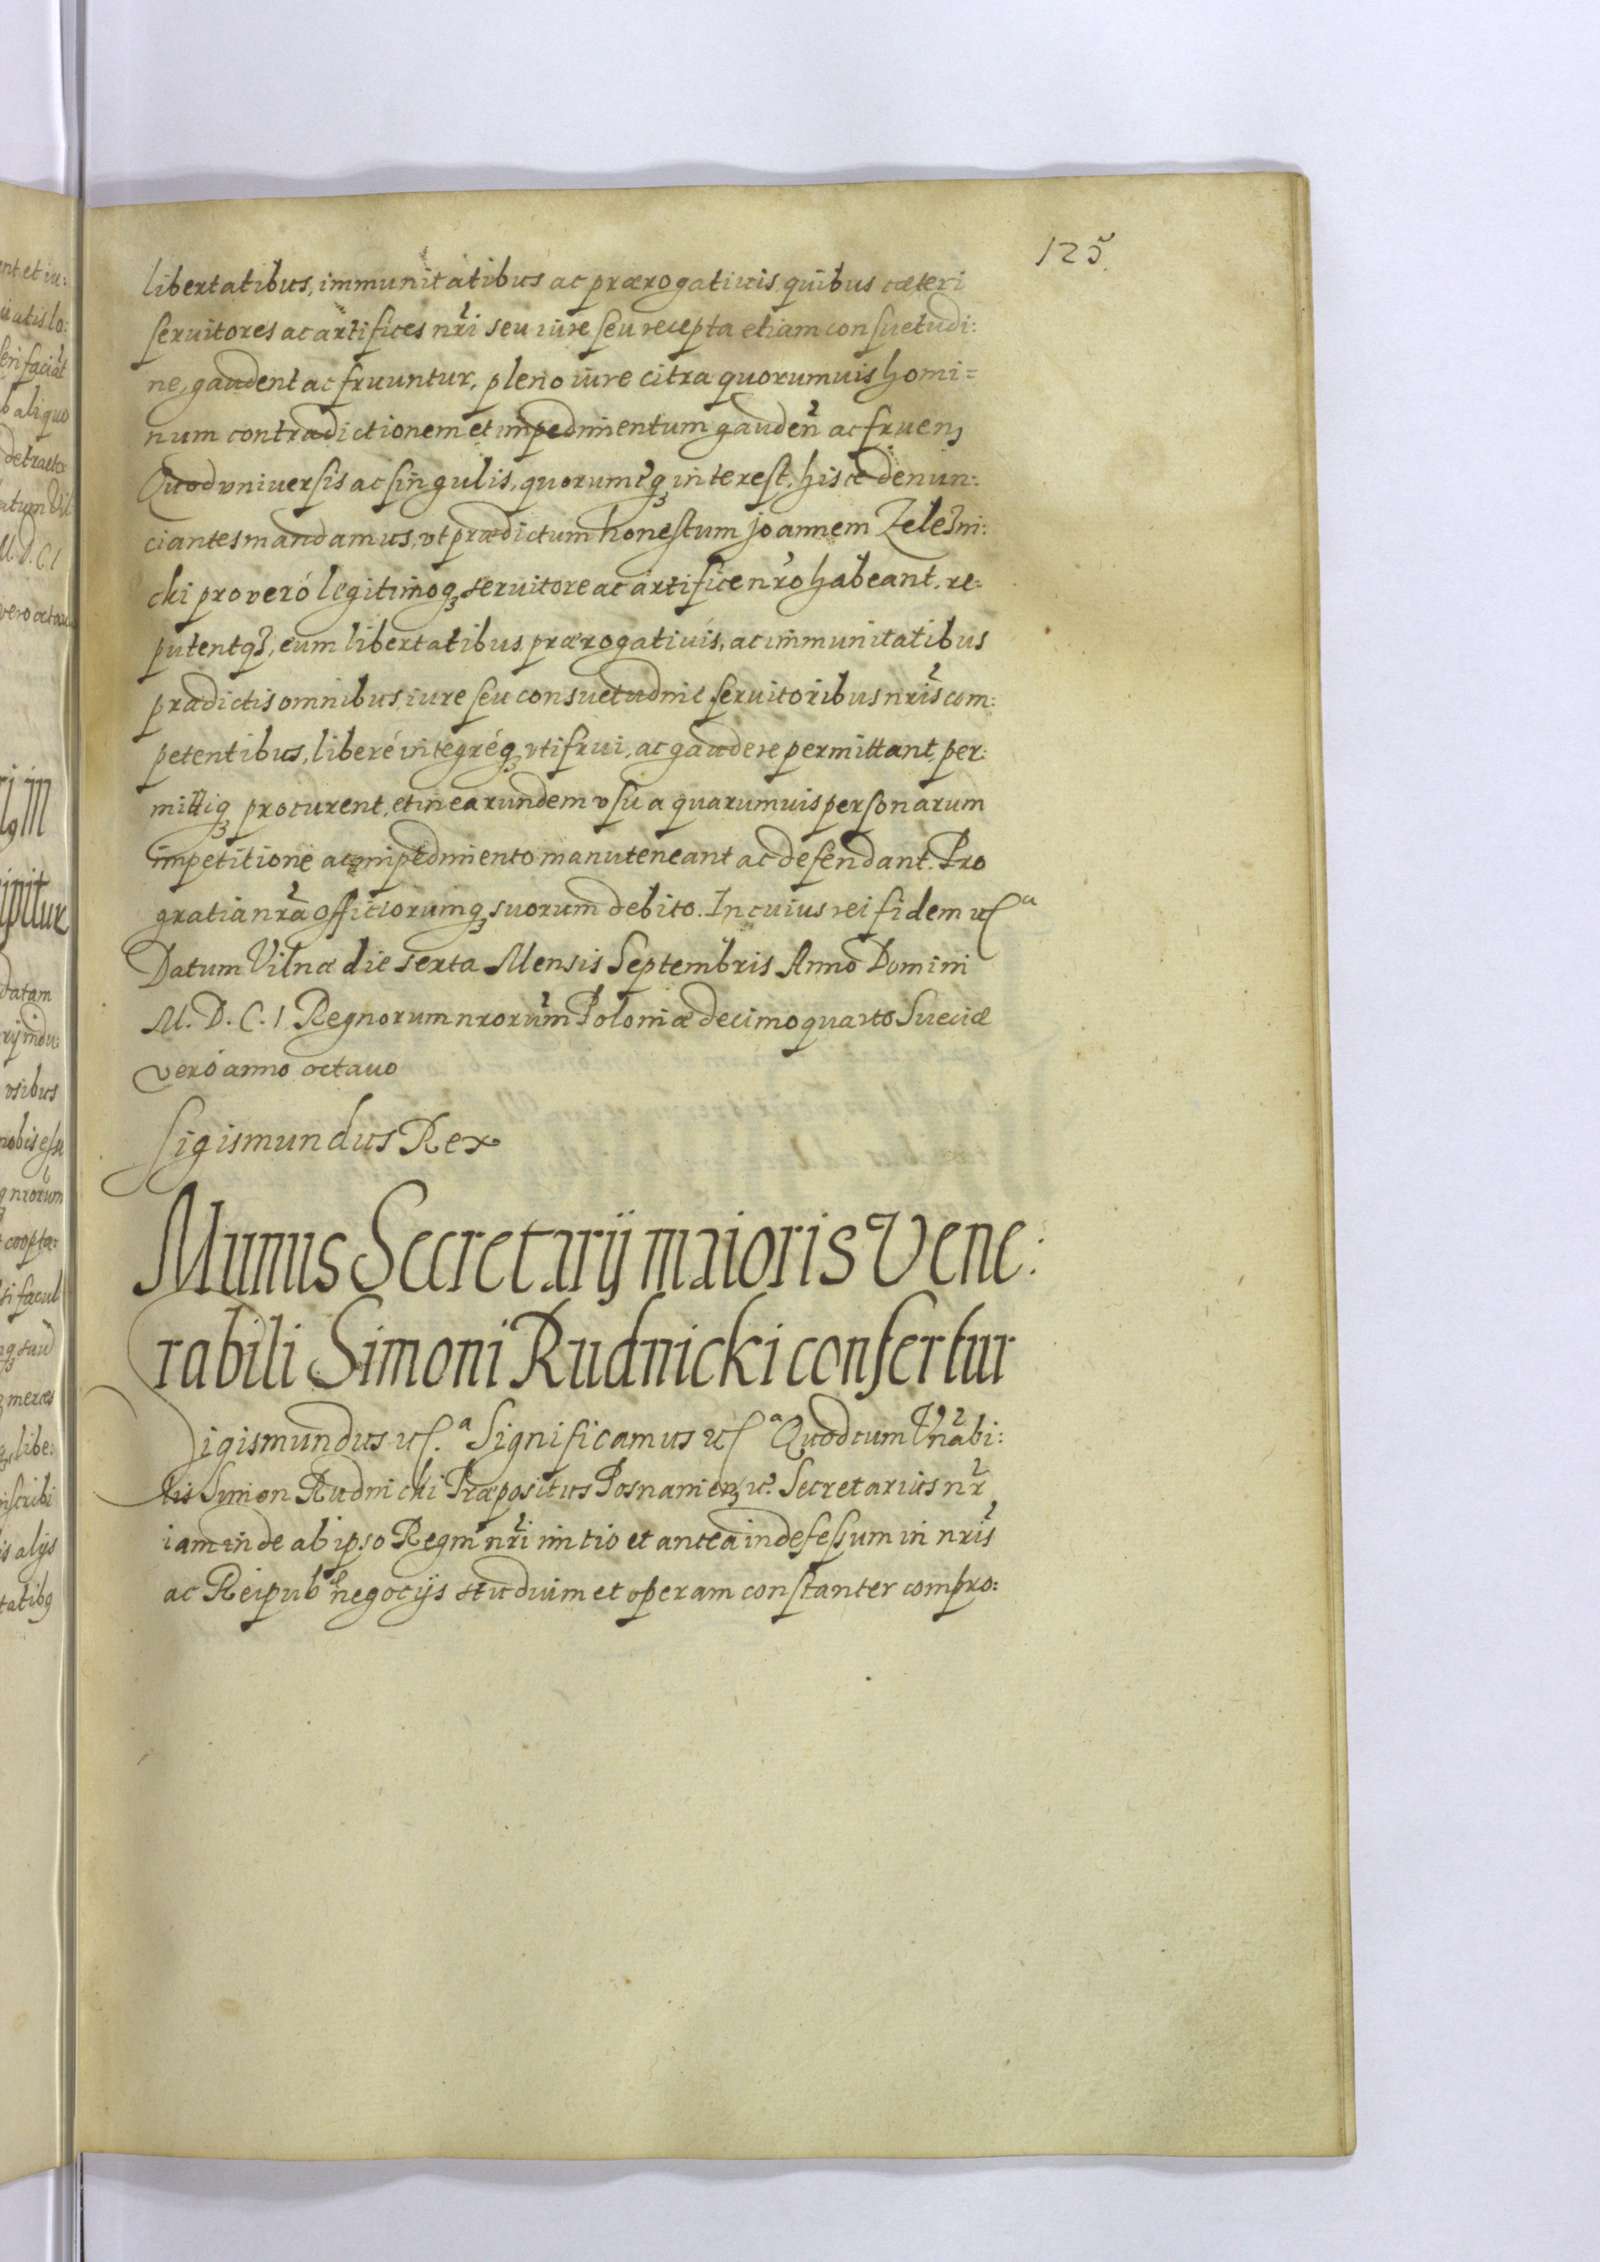 125.
libertatibus, immunitatibus ac prærogatiuis, quibus cæteri
seruitores ac artifices nr̃i seu iure seu recepta etiam consuetudi:
ne, gaudent ac fruuntur, pleno iure citra quorumuis homi=
num contradictionem et impedimentum gauden̄ ac fruenꝫ
Quod vniuersis ac singulis, quorumcꝫ interest, hisce denun:
ciantes mandamus, vt prædictum honestum Joannem Zelezni:
cki pro veró legitimoqꝫ seruitore ac artifice nr̃o habeant, re:
putentqꝫ, eum libertatibus prærogatiuis, ac immunitatibus
prædictis omnibus, iure seu consuetudine seruitoribus nr̃is com:
petentibus, liberé integréqꝫ vti frui, ac gaudere permittant, per:
mittiqꝫ procurent, et in earundem vsu a quarumuis personarum
impetitione ac impedimento manuteneant ac defendant. Pro
gratia nr̃a officiorumqꝫ suorum debito. In cuius rei fidem etc.ª
Datum Vilnæ die sexta Mensis Septembris Anno Domini
M. D. C. I Regnorum nrorum̃ Poloniæ decimoquarto Sueciæ
veró anno octauo
Sigismundus Rex
Munus Secretarij maioris Vene:
rabili Simoni Rudnicki confertur
Sigismundus etc.ª Significamus etc.ª Quod cum Vnr̃abi:
lis Simon Rudnicki Præpositus Posnanienꝫ etc. Secretarius nr̃
iam inde ab ipso Regni nr̃i initio et antea indefessum in nr̃is
ac Reipub: negocijs studium et operam constanter compro: